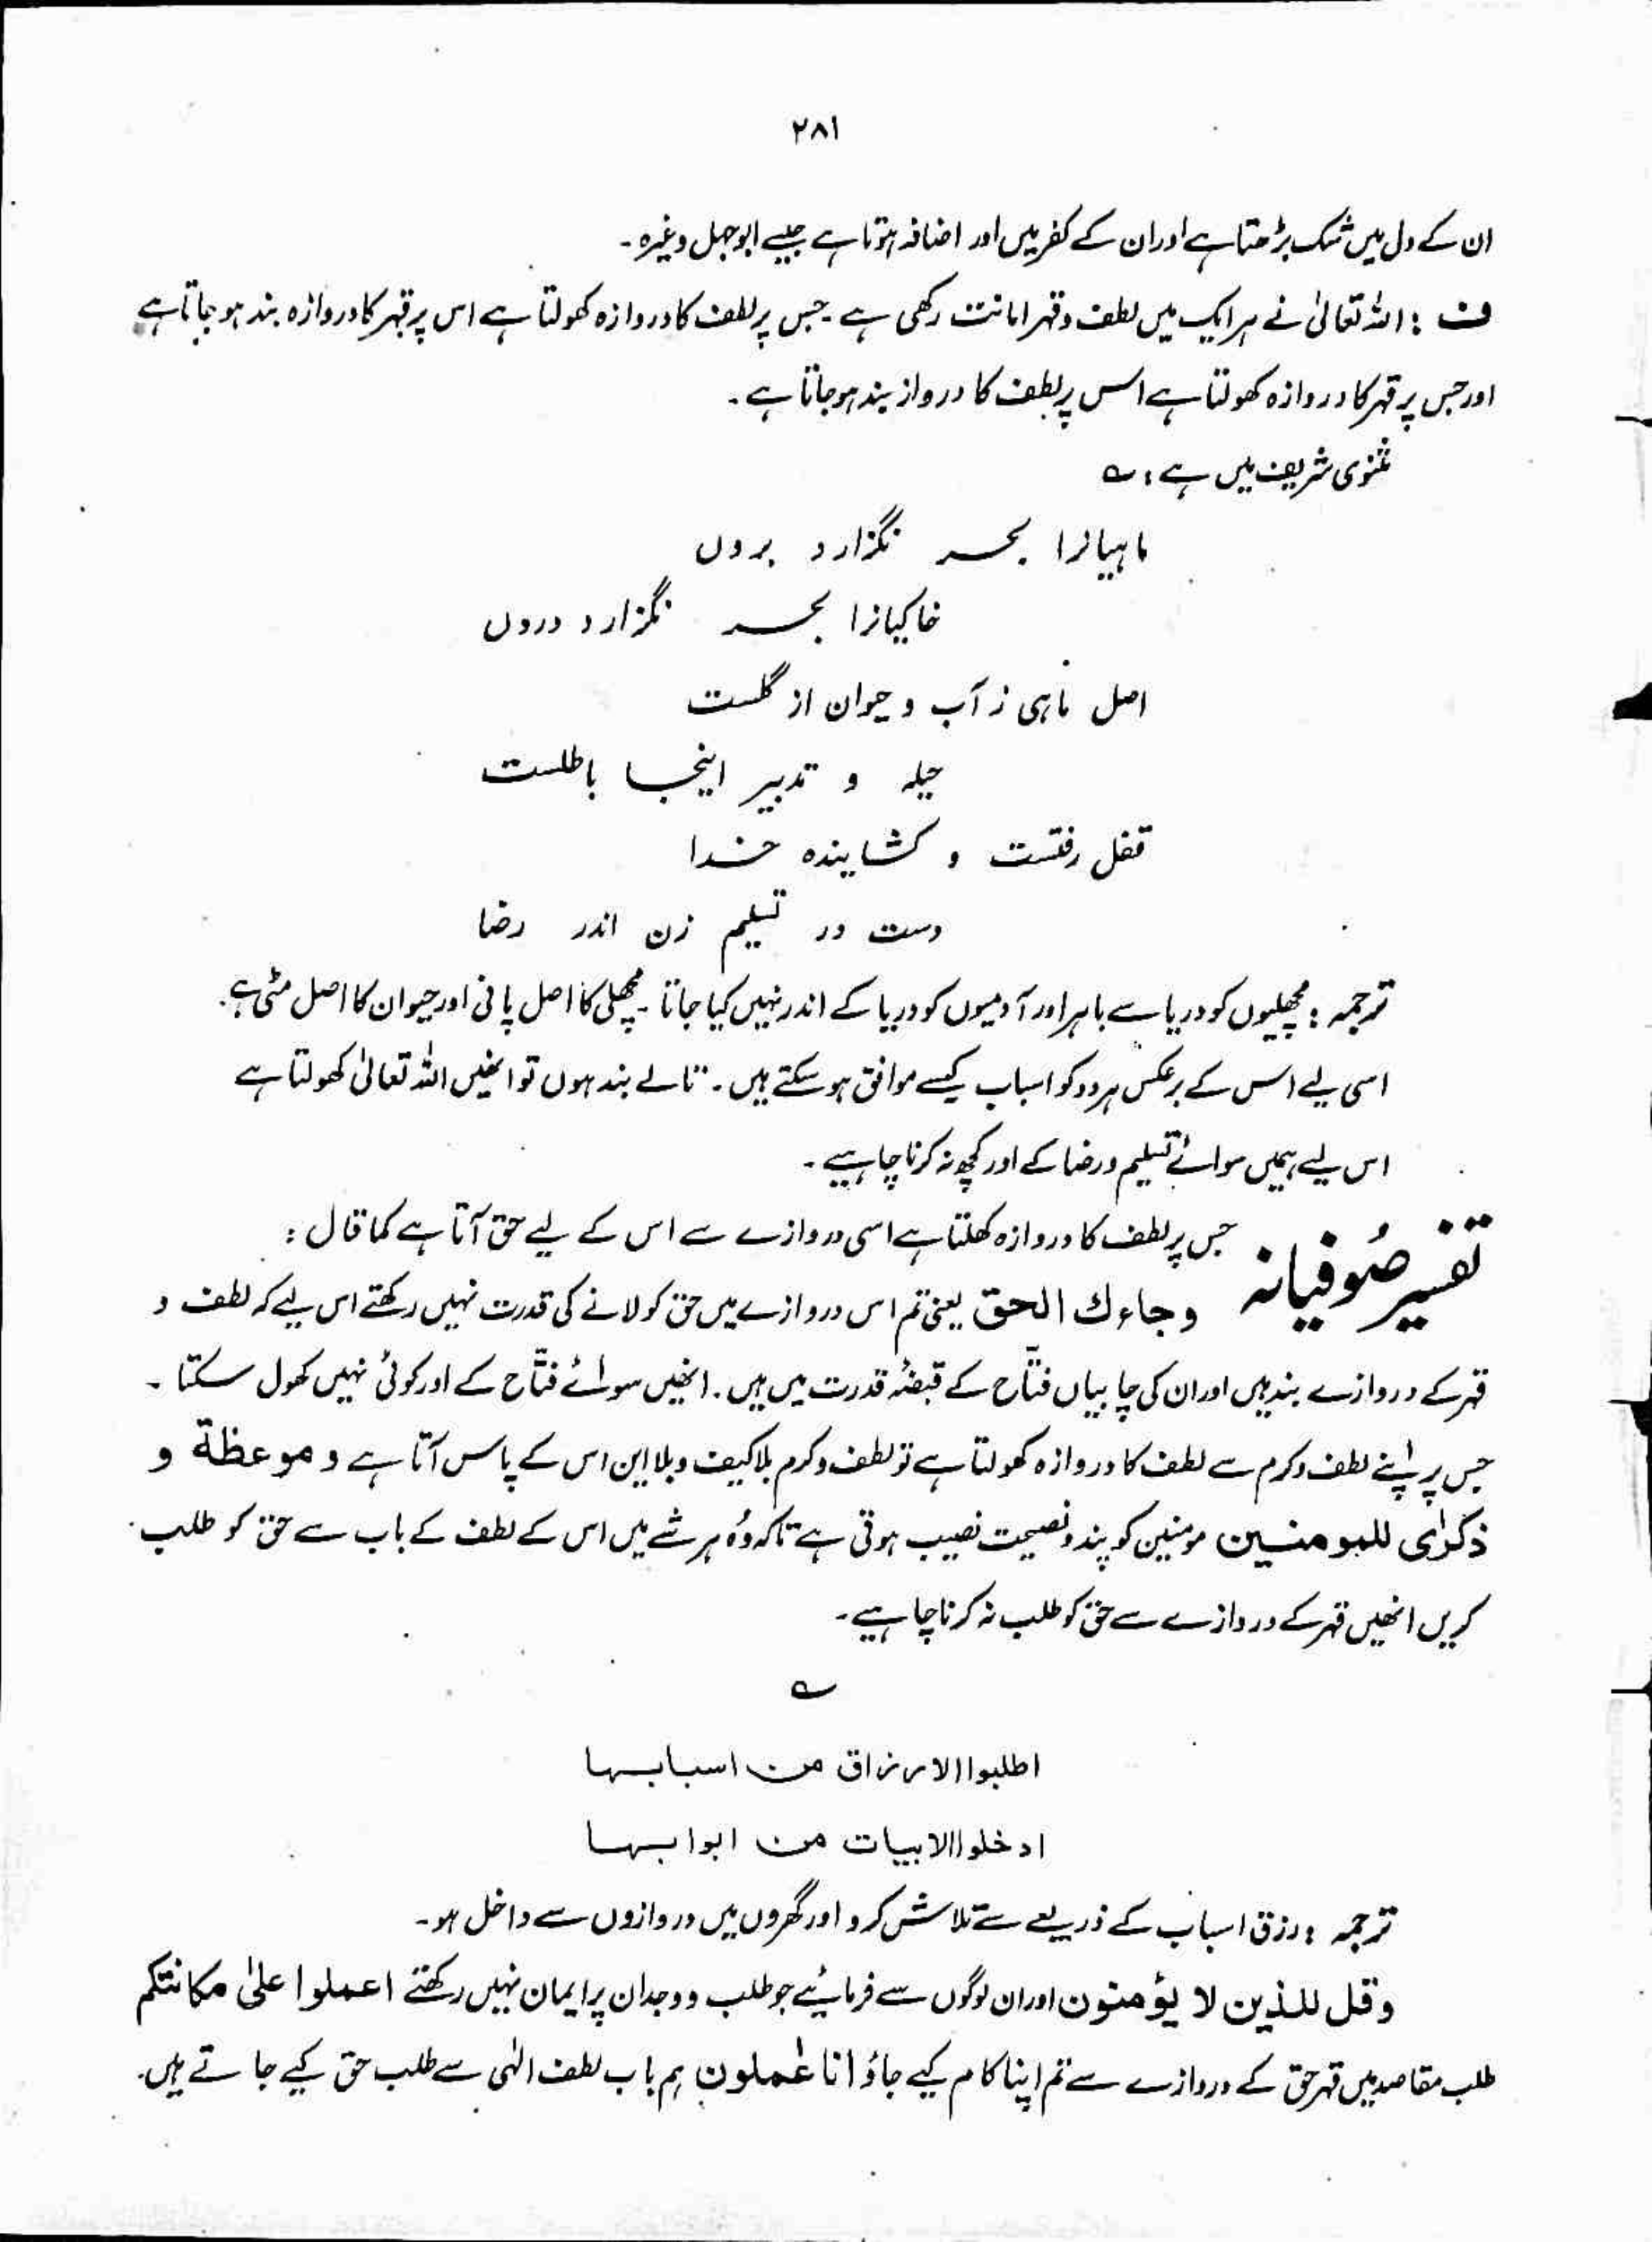 ۲۸۱
ان کے دل میں شک بڑھتا ہے اور ان کے کفر میں اور اضافہ ہوتا ہے جیسے ابوجہل وغیرہ۔
ف : اللہ تعالیٰ نے ہر ایک میں لطف و قہر امانت رکھی ہے۔ جس پر لطف کا دروازہ کھولتا ہے اس پر قہر کا دروازہ بند ہو جاتا ہے
اور جس پر قہر کا دروازہ کھولتا ہے اس پر لطف کا درواز بند ہو جاتا ہے۔
مثنوی شریف میں ہے : ؎
ماہیانرا بحر نگزارد بروں
خاکیانرا بحر نگزارد دروں
اصل ماہی ز آب و حیوان از گلست
حیلہ و تدبیر اینجا باطلست
قفل رفتست و کشایندہ خدا
دست در تسلیم زن اندر رضا
ترجمہ : مچھلیوں کو دریا سے باہر اور آدمیوں کو دریا کے اندر نہیں کیا جاتا۔ مچھلی کا اصل پانی اور حیوان کا اصل مٹی ہے۔
اسی لیے اس کے برعکس ہر دو کو اسباب کیسے موافق ہو سکتے ہیں۔ تالے بند ہوں تو انھیں اللہ تعالیٰ کھولتا ہے
اس لیے ہمیں سوائے تسلیم و رضا کے اور کچھ نہ کرنا چاہیے۔
تفسیر صُوفیانہ جس پر لطف کا دروازہ کھلتا ہے اسی دروازے سے اس کے لیے حق آتا ہے کما قال :
وجاءك الحق یعنی تم اس دروازے میں حق کو لانے کی قدرت نہیں رکھتے اس لیے کہ لطف و
قہر کے دروازے بند ہیں اور ان کی چابیاں فتّاح کے قبضۂ قدرت میں ہیں۔ انھیں سوائے فتّاح کے اور کوئی نہیں کھول سکتا۔
جس پر اپنے لطف و کرم سے لطف کا دروازہ کھولتا ہے تو لطف و کرم بلاکیف و بلا این اس کے پاس آتا ہے و موعظة و
ذکرٰی للمومنین مومنین کو پند و نصیحت نصیب ہوتی ہے تاکہ وُہ ہر شے میں اس کے لطف کے باب سے حق کو طلب
کریں انھیں قہر کے دروازے سے حق کو طلب نہ کرنا چاہیے۔
؎
اطلبوا الارزاق من اسبابها
ادخلوا الابیات من ابوابها
ترجمہ : رزق اسباب کے ذریعے سے تلاش کرو اور گھروں میں دروازوں سے داخل ہو۔
وقل للذین لا یؤمنون اور ان لوگوں سے فرمائیے جو طلب و وجدان پر ایمان نہیں رکھتے اعملوا علیٰ مکانتکم
طلب مقاصد میں قہر حق کے دروازے سے تم اپنا کام کیے جاؤ انا عٰملون ہم باب لطف الٰہی سے طلب حق کیے جاتے ہیں۔